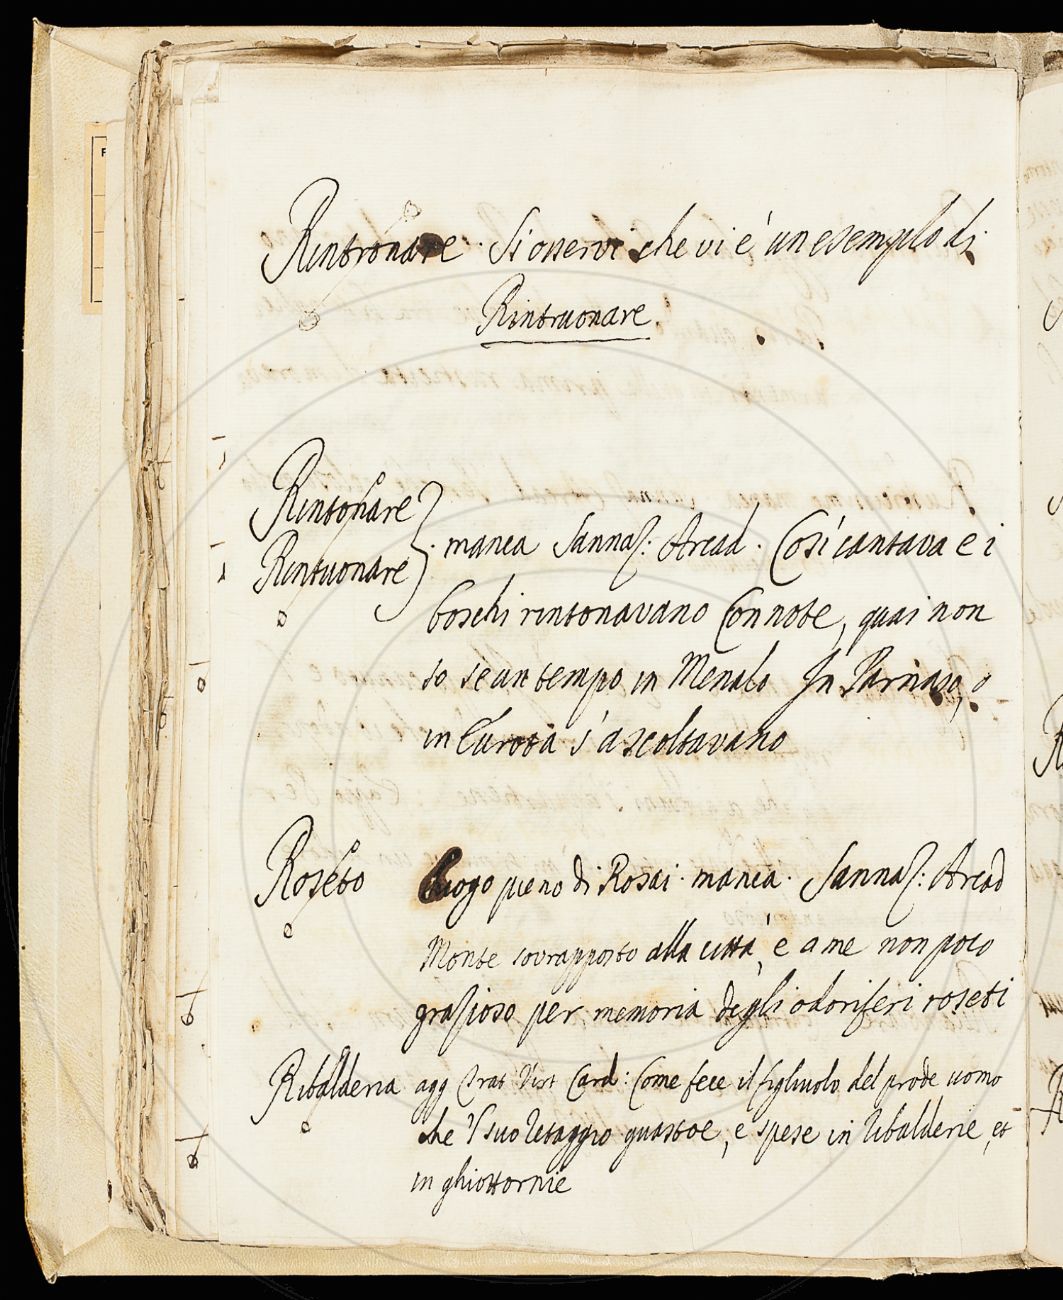 Rintronare. Si osservi che vi é un esemplo di
Rintruonare.
Rintonare
Rintuonare
manca Sannaz: Arcad. Cosi cantava e i
boschi rintonavano Con note, quai non
so se un tempo in Menalo In Parnaso, o
in Eurota s'ascoltavano
Roseto luogo pieno di Rosai. manca. Sannaz: Arcad
Monte sovrapposto alla città, e a me non poco
grazioso per memoria degli odoriferi roseti
Ribalderia agg Trat Virt Card: Come fece il figliuolo del prode uomo
che 'l suo retaggio guastoe, e spese in ribalderie, et
in ghiottornie